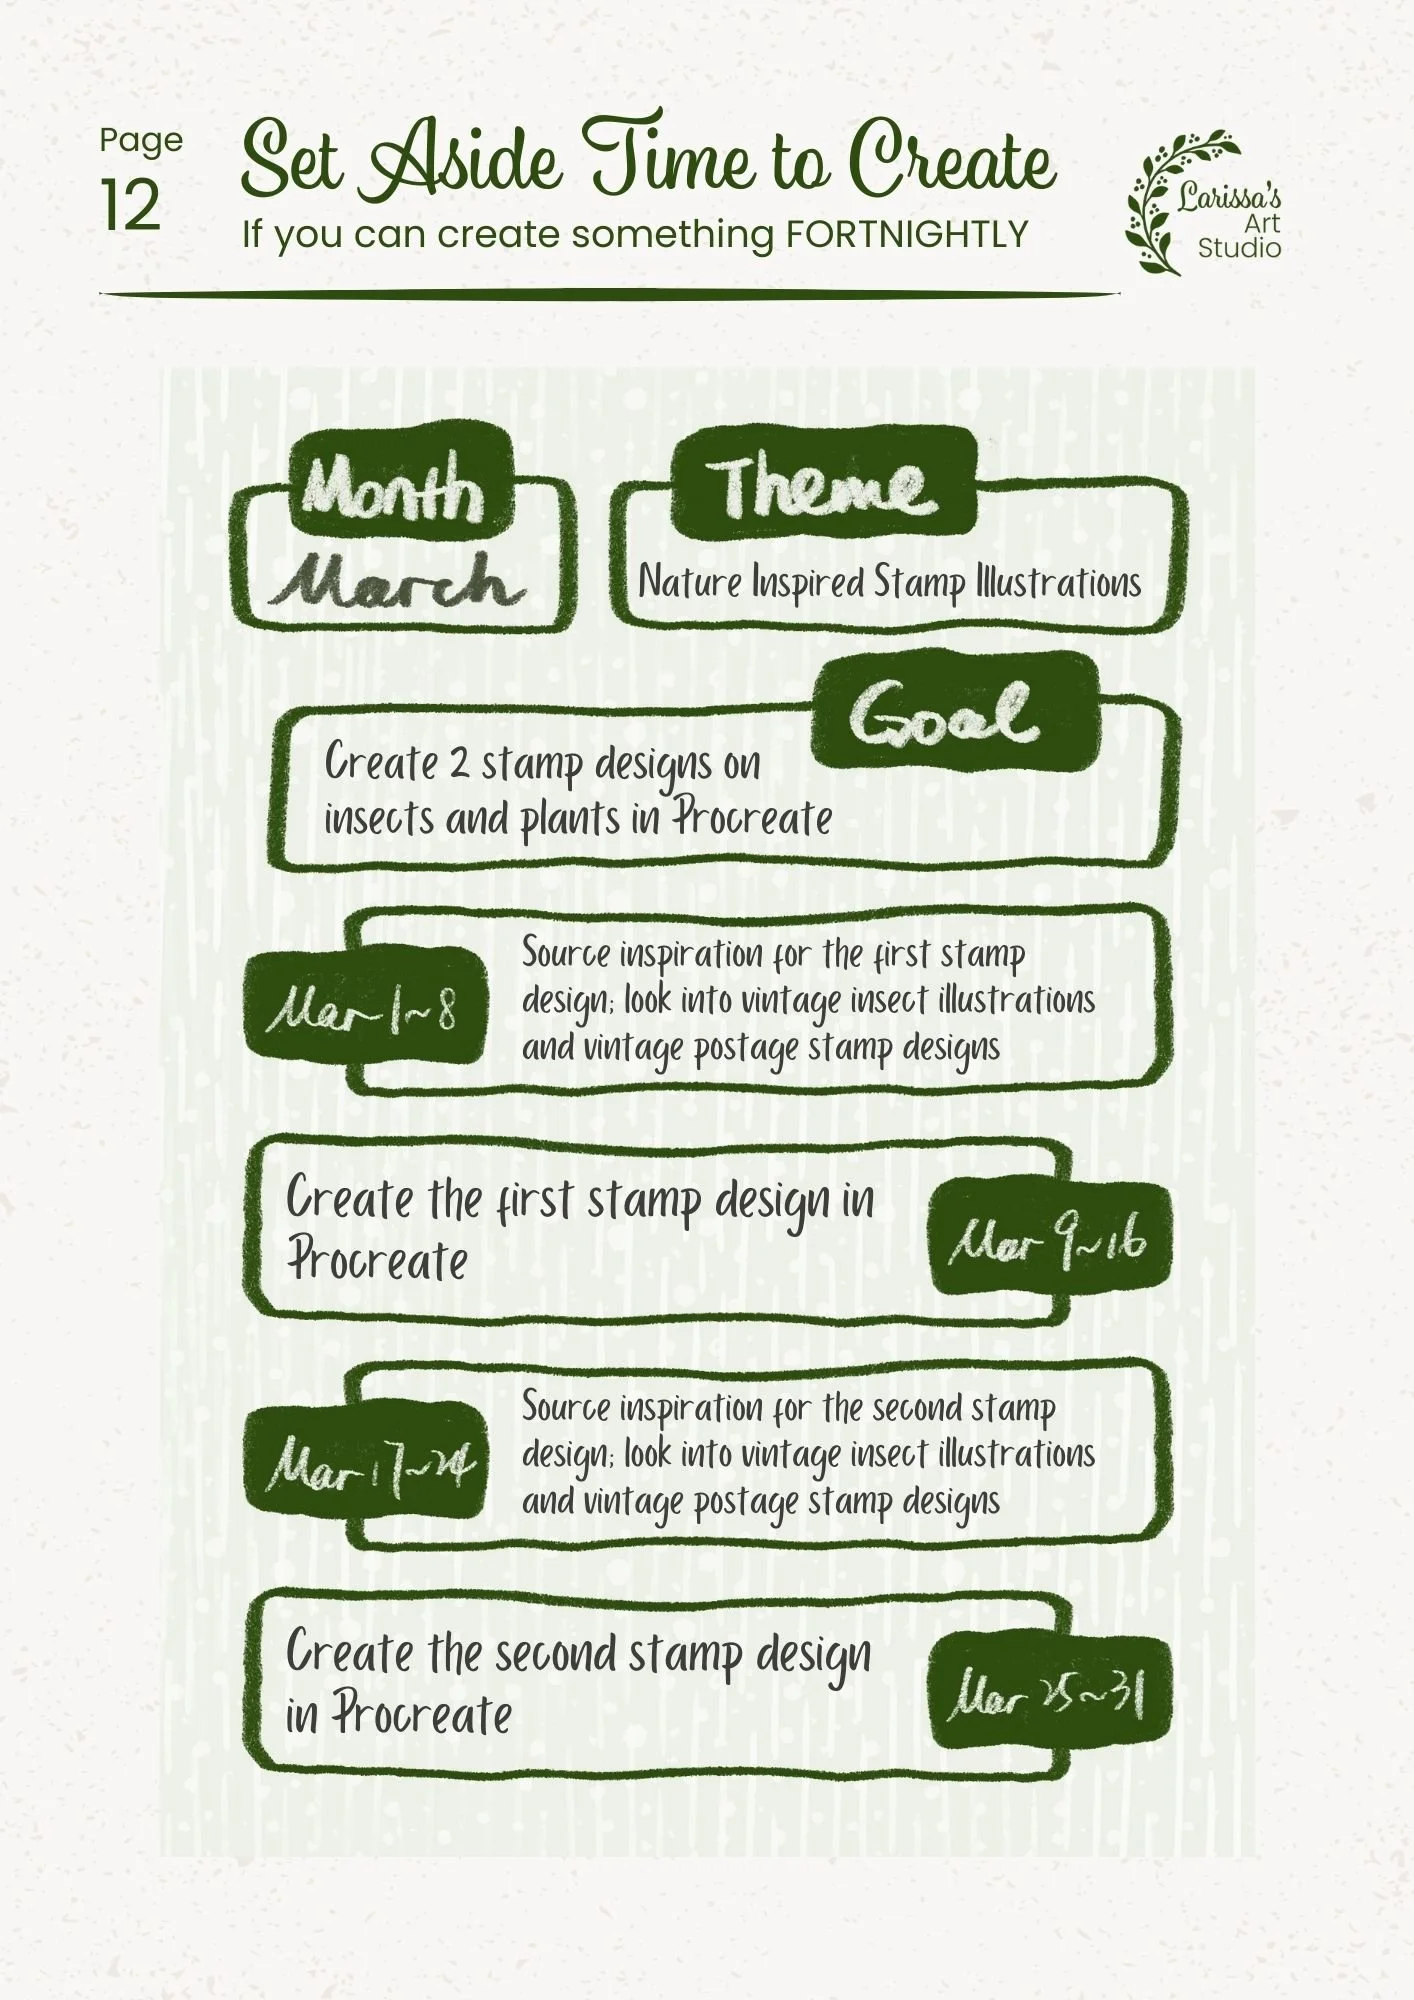 Page
12
Set Aside Time to Create
If you can create something FORTNIGHTLY
Larissa's
Art
Studio
Month
March
Theme
Nature Inspired Stamp Illustrations
Goal
Create 2 stamp designs on
insects and plants in Procreate
Mar 1~8
Source inspiration for the first stamp
design; look into vintage insect illustrations
and vintage postage stamp designs
Create the first stamp design in
Procreate
Mar 9~16
Mar 17~24
Source inspiration for the second stamp
design; look into vintage insect illustrations
and vintage postage stamp designs
Create the second stamp design
in Procreate
Mar 25~31